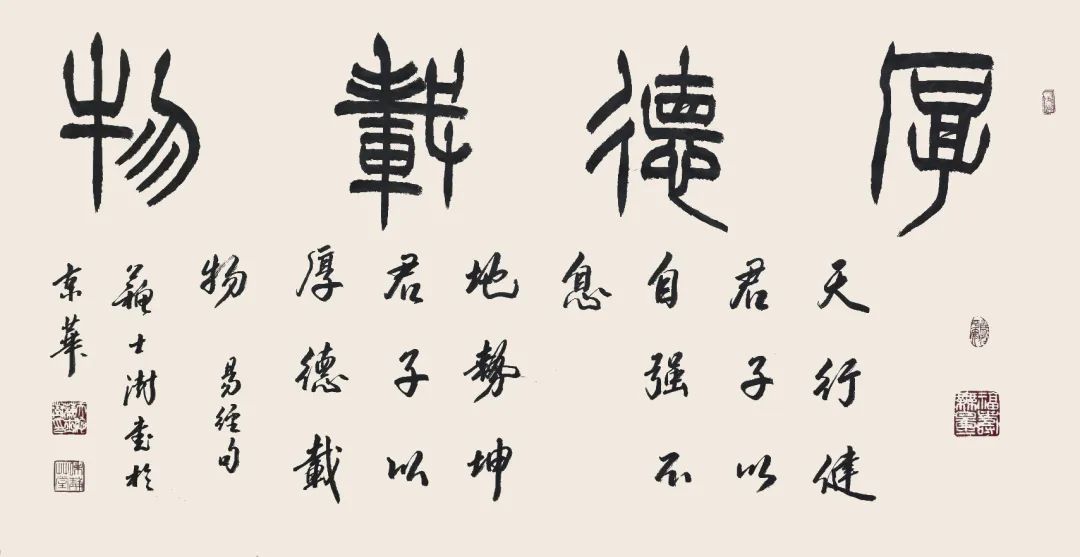 厚德載物
天行健
君子以
自强不
息
地勢坤
君子以
厚德載
物 易經句
蘇士澍書於
京華
福壽無量